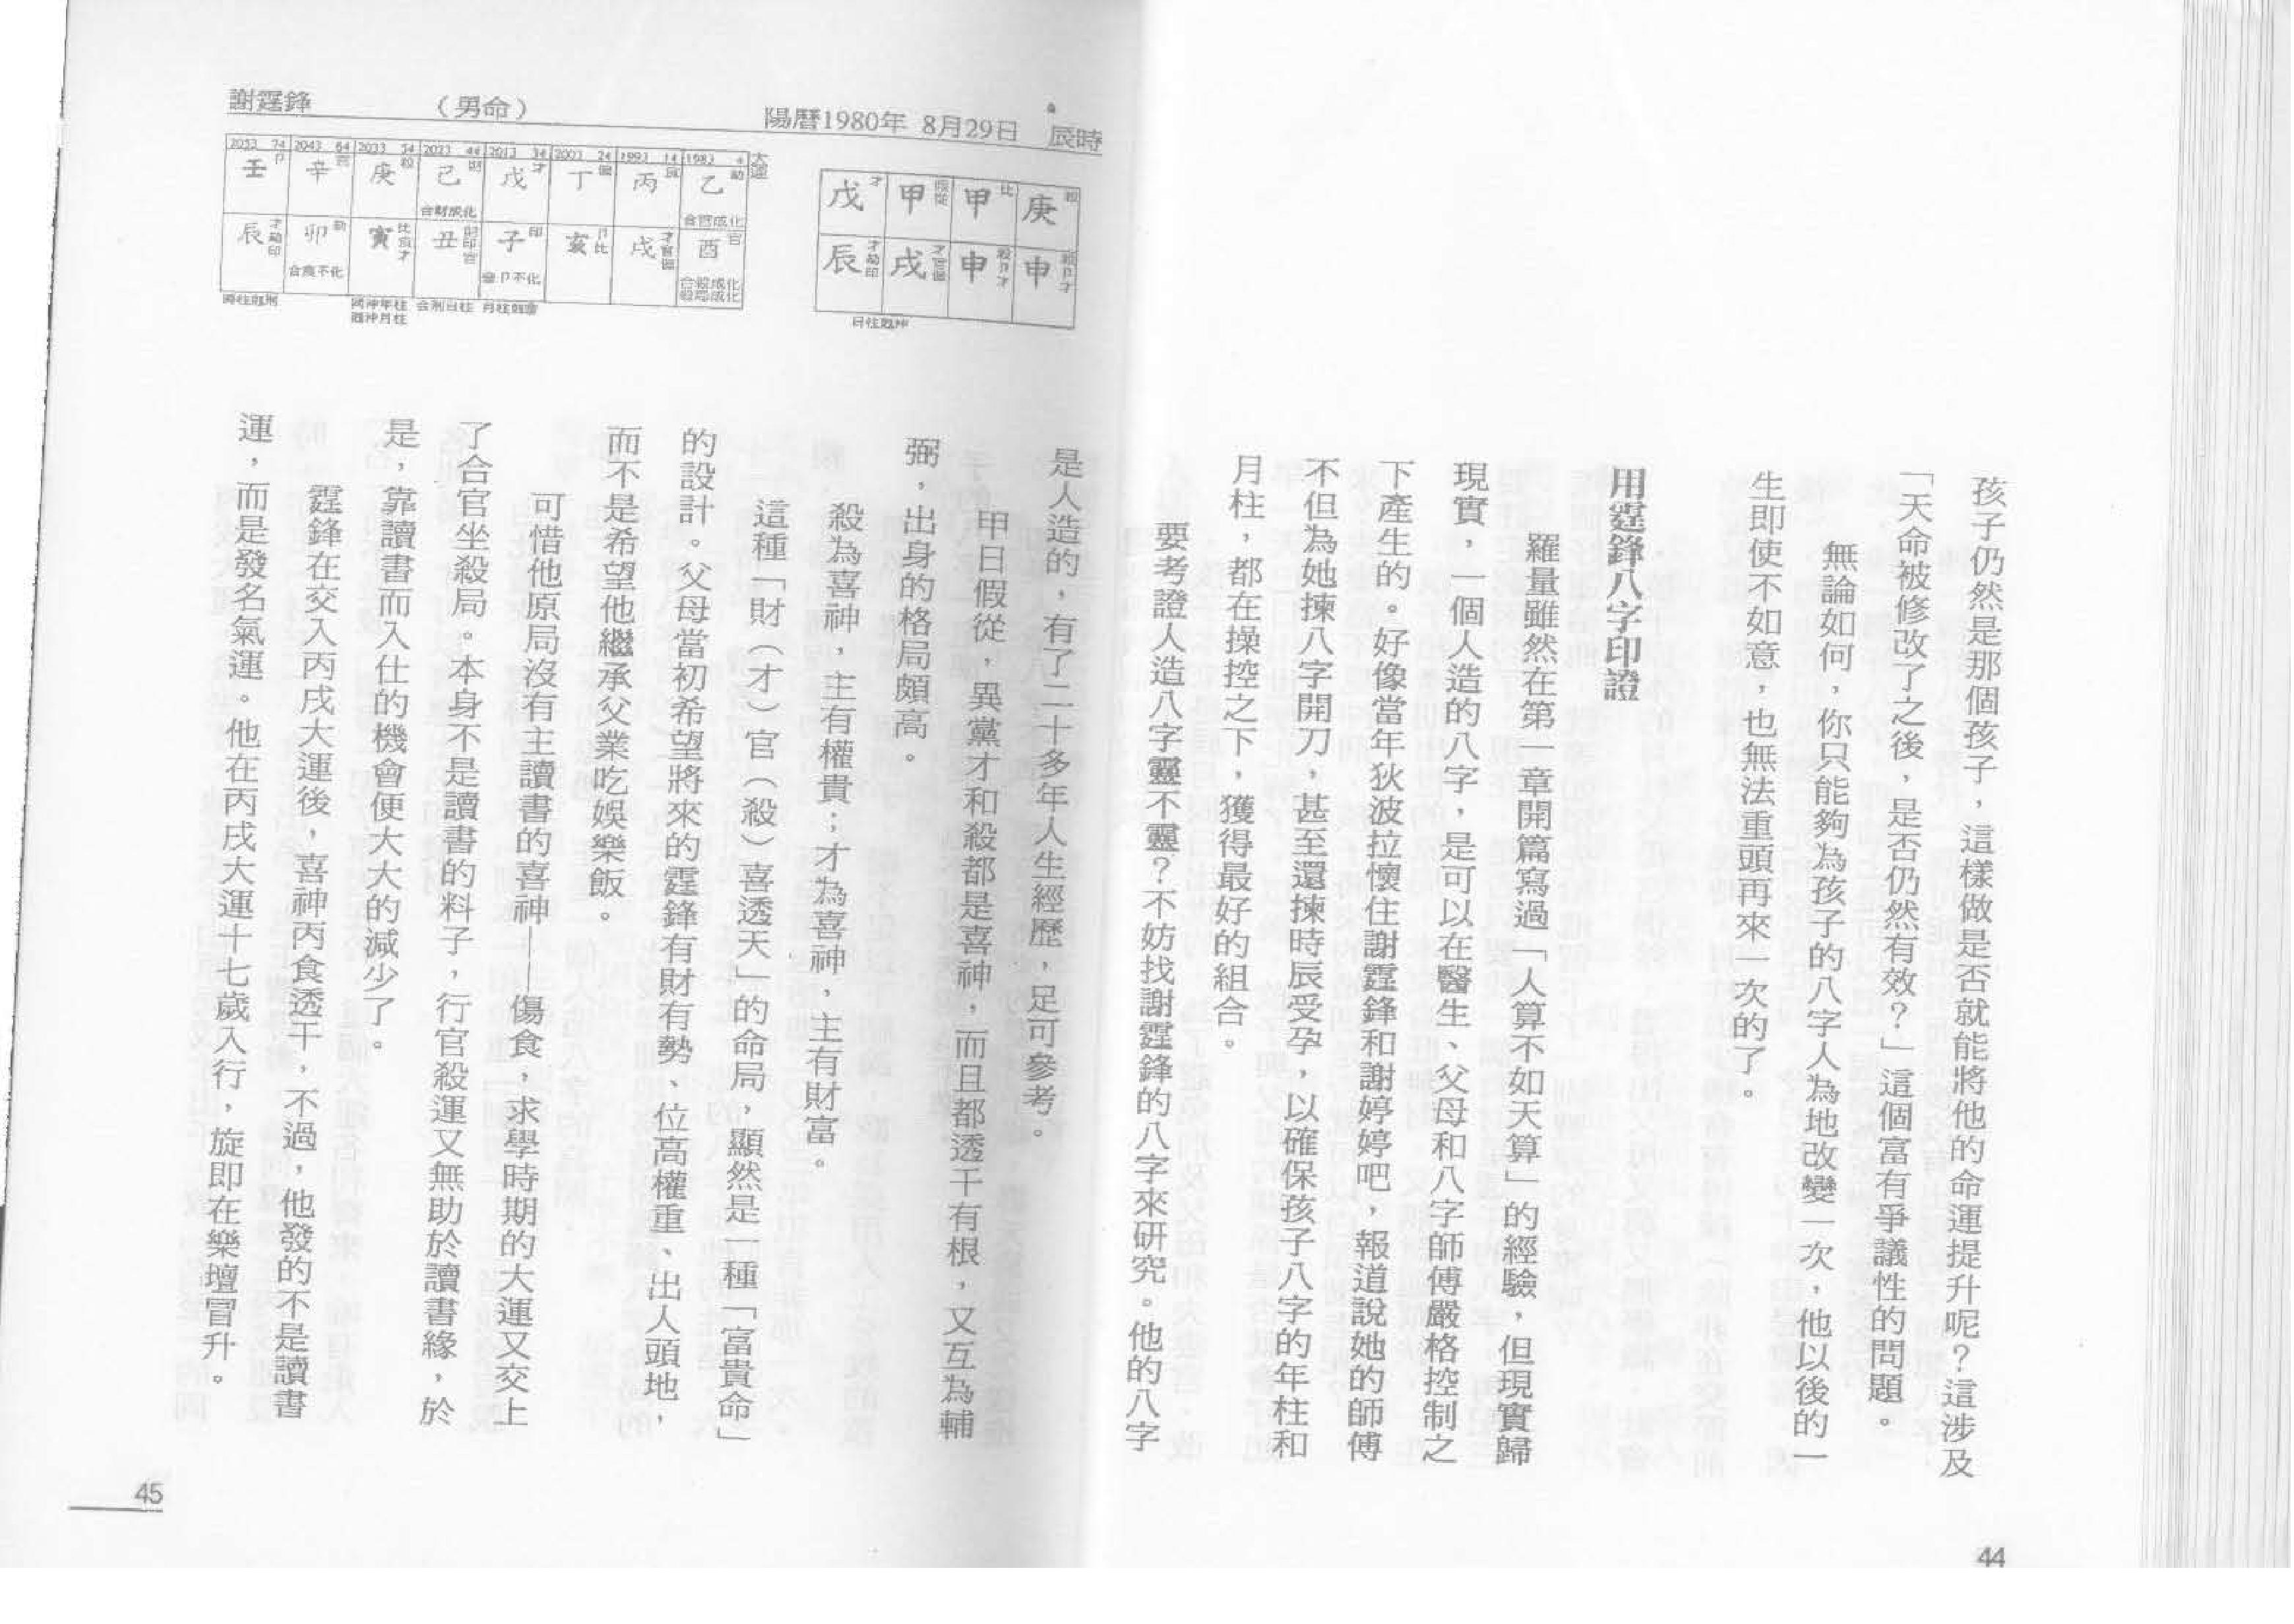 孩子仍然是那個孩子，這樣做是否就能將他的命運提升呢？這涉及
「天命被修改了之後，是否仍然有效？」這個富有爭議性的問題。
無論如何，你只能夠為孩子的八字人為地改變一次，他以後的一
生即使不如意，也無法重頭再來一次的了。
用霆鋒八字印證
羅量雖然在第一章開篇寫過「人算不如天算」的經驗，但現實歸
現實，一個人造的八字，是可以在醫生、父母和八字師傅嚴格控制之
下產生的。好像當年狄波拉懷住謝霆鋒和謝婷婷吧，報道說她的師傅
不但為她揀八字開刀，甚至還揀時辰受孕，以確保孩子八字的年柱和
月柱，都在操控之下，獲得最好的組合。
要考證人造八字靈不靈？不妨找謝霆鋒的八字來研究。他的八字
44
謝霆鋒　（男命）　陽曆1980年 8月29日　辰時
庚殺 甲比 甲假從 戊才
申殺卩才 申殺卩才 戌才官傷 辰才劫印
日柱尅沖
大運
1983 4 1993 14 2003 24 2013 34 2023 44 2033 54 2043 64 2053 74
乙劫 丙食 丁傷 戊才 己財 庚殺 辛官 壬卩
合官成化 合財成化
酉官 戌才官傷 亥卩比 子印 丑財印官 寅比食才 卯劫 辰才劫印
合殺成化 會卩不化 合傷不化
是人造的，有了二十多年人生經歷，足可參考。
甲日假從，異黨才和殺都是喜神，而且都透干有根，又互為輔
弼，出身的格局頗高。
殺為喜神，主有權貴；才為喜神，主有財富。
這種「財（才）官（殺）喜透天」的命局，顯然是一種「富貴命」
的設計。父母當初希望將來的霆鋒有財有勢、位高權重、出人頭地，
而不是希望他繼承父業吃娛樂飯。
可惜他原局沒有主讀書的喜神——傷食，求學時期的大運又交上
了合官坐殺局。本身不是讀書的料子，行官殺運又無助於讀書緣，於
是，靠讀書而入仕的機會便大大的減少了。
霆鋒在交入丙戌大運後，喜神丙食透干，不過，他發的不是讀書
運，而是發名氣運。他在丙戌大運十七歲入行，旋即在樂壇冒升。
45